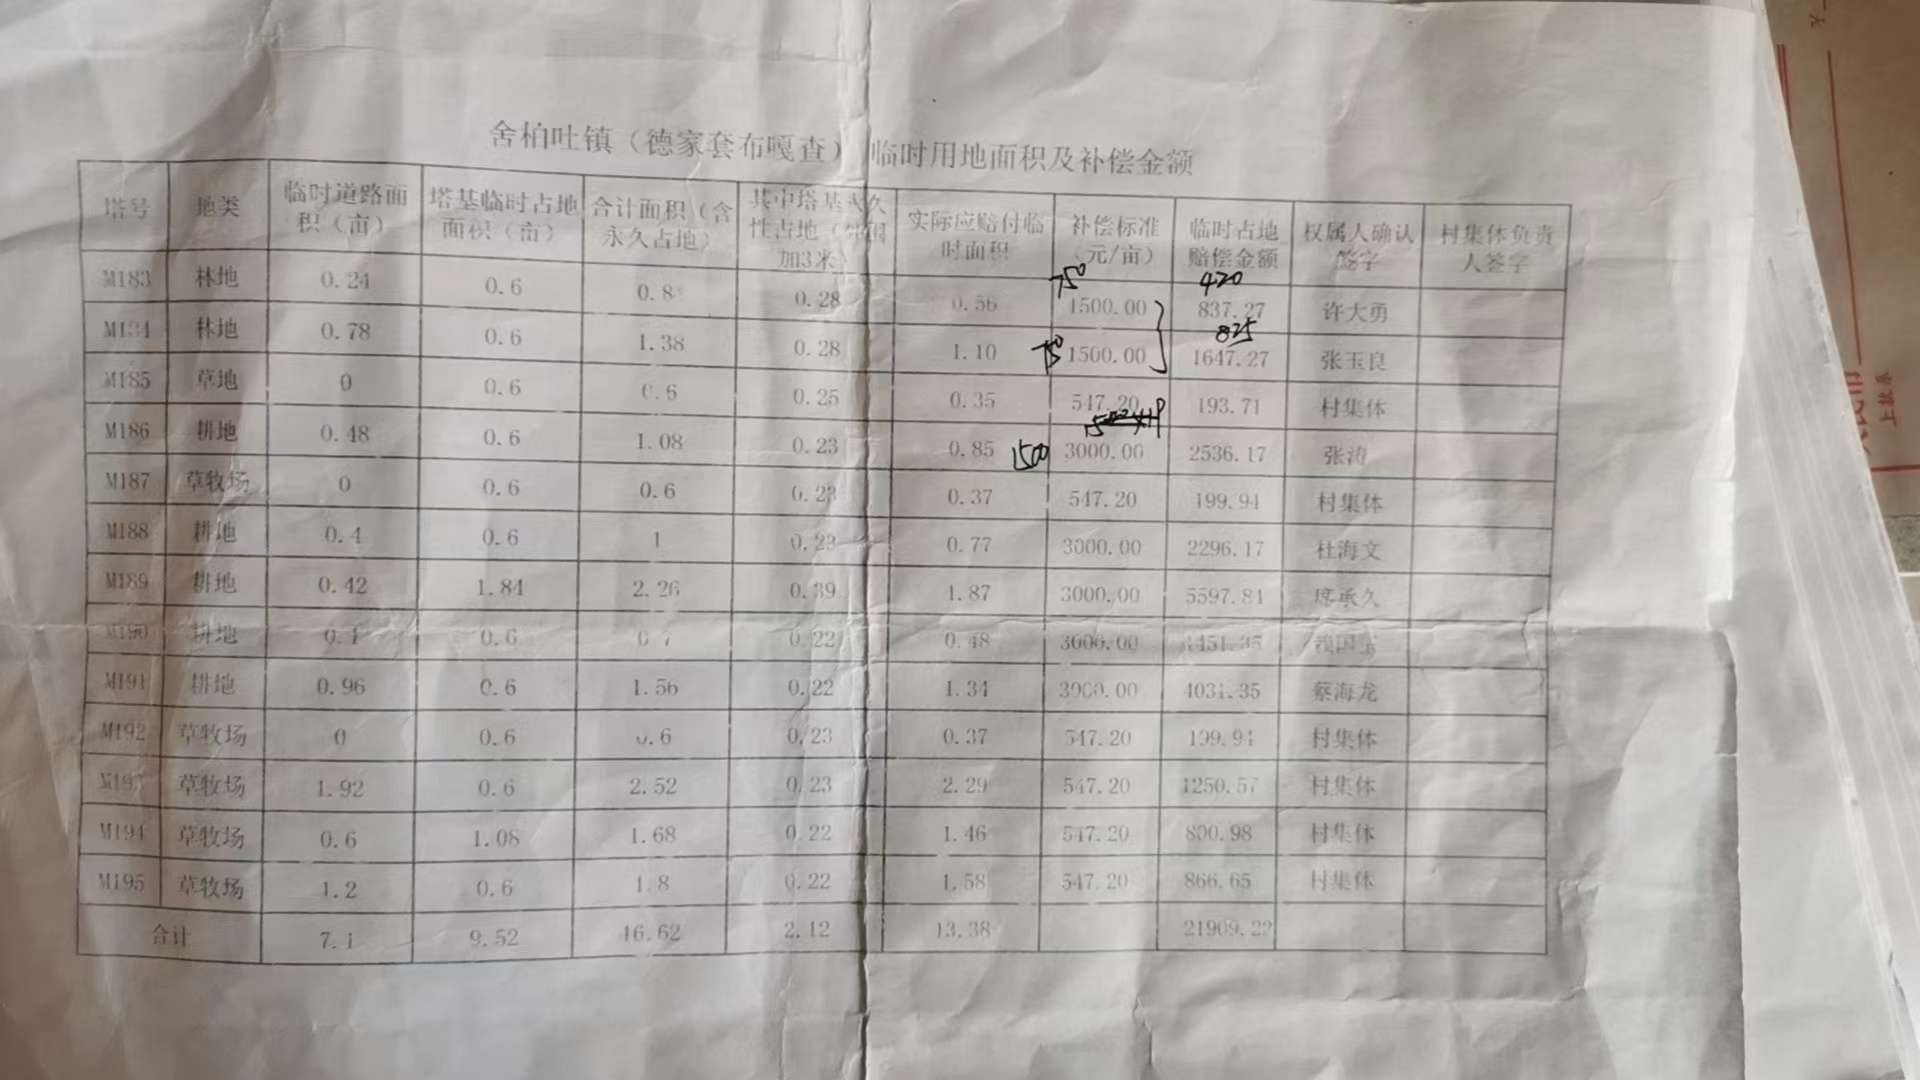 舍柏吐镇（德家套布嘎查）临时用地面积及补偿金额
塔号 地类 临时道路面积（亩） 塔基临时占地面积（亩） 合计面积（含永久占地） 其中塔基永久性占地（外围加3米） 实际应赔付临时面积 补偿标准（元/亩） 临时占地赔偿金额 权属人确认签字 村集体负责人签字
750 420
M183 林地 0.24 0.6 0.8 0.28 0.56 1500.00 837.27 许大勇
750 825
M184 林地 0.78 0.6 1.38 0.28 1.10 1500.00 1647.27 张玉良
M185 草地 0 0.6 0.6 0.25 0.35 547.20 193.71 村集体
1500
M186 耕地 0.48 0.6 1.08 0.23 0.85 3000.00 2536.17 张涛
M187 草牧场 0 0.6 0.6 0.23 0.37 547.20 199.94 村集体
M188 耕地 0.4 0.6 1 0.23 0.77 3000.00 2296.17 杜海文
M189 耕地 0.42 1.84 2.26 0.39 1.87 3000.00 5597.84 席承久
M190 耕地 0.1 0.6 0.7 0.22 0.48 3000.00 1451.35
M191 耕地 0.96 0.6 1.56 0.22 1.34 3000.00 4031.35 蔡海龙
M192 草牧场 0 0.6 0.6 0.23 0.37 547.20 199.94 村集体
M193 草牧场 1.92 0.6 2.52 0.23 2.29 547.20 1250.57 村集体
M194 草牧场 0.6 1.08 1.68 0.22 1.46 547.20 800.98 村集体
M195 草牧场 1.2 0.6 1.8 0.22 1.58 547.20 866.65 村集体
合计 7.1 9.52 16.62 2.12 13.38 21909.22